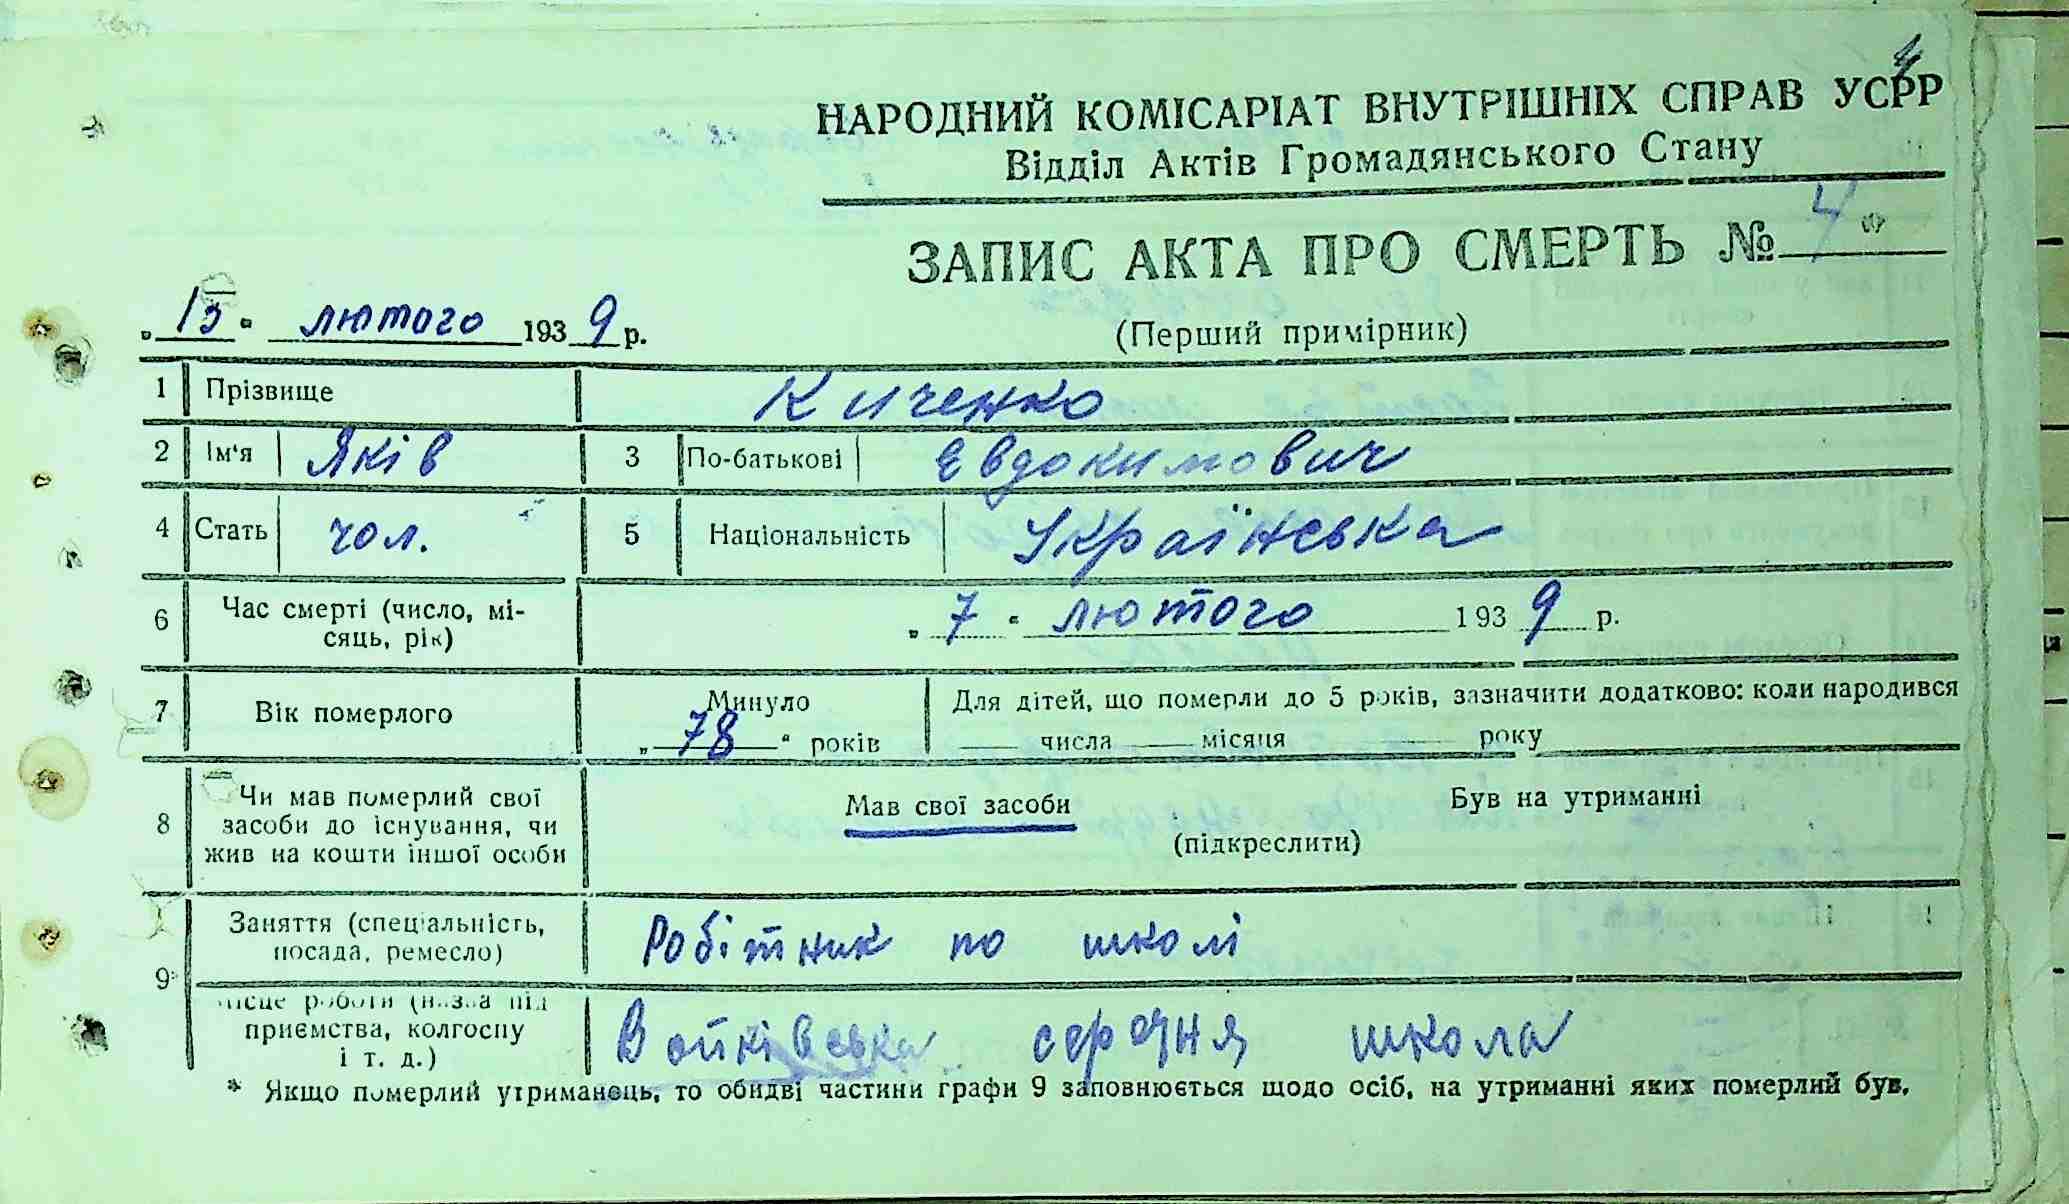 4
НАРОДНИЙ КОМІСАРІАТ ВНУТРІШНІХ СПРАВ УСРР
Відділ Актів Громадянського Стану
ЗАПИС АКТА ПРО СМЕРТЬ № 4 *
„ 13 " лютого 1939 р.
(Перший примірник)
1 Прізвище Киченко
2 Ім'я Яків 3 По-батькові Евдокимович
4 Стать чол. 5 Національність Українська
6 Час смерті (число, мі-
сяць, рік) „ 7 " лютого 1939 р.
7 Вік померлого Минуло „ 78 " років Для дітей, що померли до 5 років, зазначити додатково: коли народився
числа місяця року
8 Чи мав померлий свої
засоби до існування, чи
жив на кошти іншої особи
Мав свої засоби Був на утриманні
(підкреслити)
9 Заняття (спеціальність,
посада, ремесло) Робітник по школі
місце роботи (назва під
приємства, колгоспу
і т. д.) Войківська середня школа
* Якщо померлий утриманець, то обидві частини графи 9 заповнюється щодо осіб, на утриманні яких померлий був.